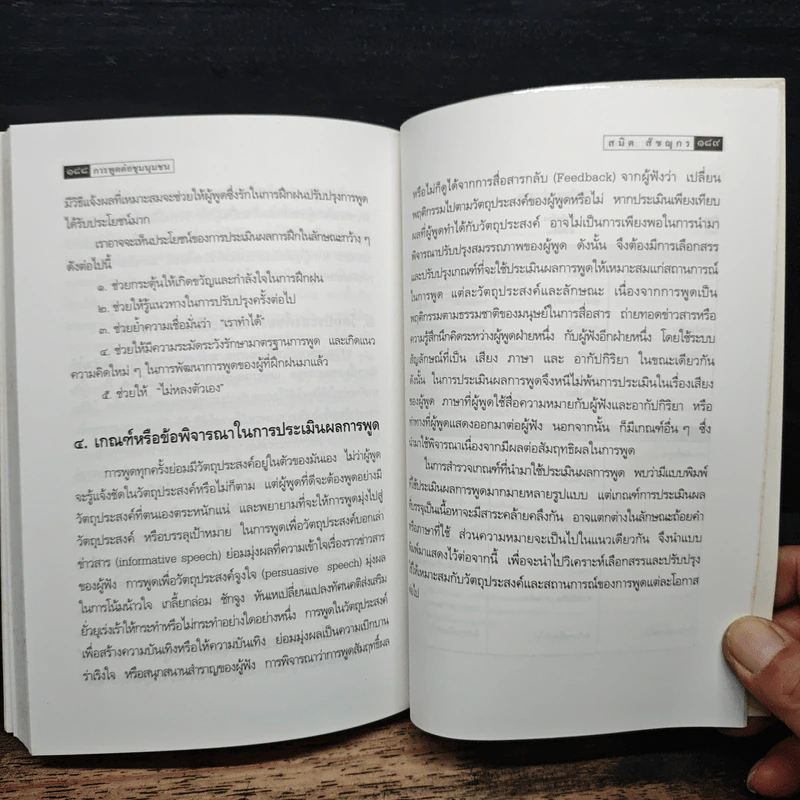 ๑๘๘ การพูดต่อชุมนุมชน
มีวิธีแจ้งผลที่เหมาะสมจะช่วยให้ผู้พูดซึ่งรักในการฝึกฝนปรับปรุงการพูด
ได้รับประโยชน์มาก
เราอาจจะเห็นประโยชน์ของการประเมินผลการฝึกในลักษณะกว้าง ๆ
ดังต่อไปนี้
๑. ช่วยกระตุ้นให้เกิดขวัญและกำลังใจในการฝึกฝน
๒. ช่วยให้รู้แนวทางในการปรับปรุงครั้งต่อไป
๓. ช่วยย้ำความเชื่อมั่นว่า "เราทำได้"
๔. ช่วยให้มีความระมัดระวังรักษามาตรฐานการพูด และเกิดแนว
ความคิดใหม่ ๆ ในการพัฒนาการพูดของผู้ที่ฝึกฝนมาแล้ว
๕. ช่วยให้ "ไม่หลงตัวเอง"
๔. เกณฑ์หรือข้อพิจารณาในการประเมินผลการพูด
การพูดทุกครั้งย่อมมีวัตถุประสงค์อยู่ในตัวของมันเอง ไม่ว่าผู้พูด
จะรู้แจ้งชัดในวัตถุประสงค์หรือไม่ก็ตาม แต่ผู้พูดที่ดีจะต้องพูดอย่างมี
วัตถุประสงค์ที่ตนเองตระหนักแน่ และพยายามที่จะให้การพูดมุ่งไปสู่
วัตถุประสงค์ หรือบรรลุเป้าหมาย ในการพูดเพื่อวัตถุประสงค์บอกเล่า
ข่าวสาร (informative speech) ย่อมมุ่งผลที่ความเข้าใจเรื่องราวข่าวสาร
ของผู้ฟัง การพูดเพื่อวัตถุประสงค์จูงใจ (persuasive speech) มุ่งผล
ในการโน้มน้าวใจ เกลี้ยกล่อม ชักจูง หันเหเปลี่ยนแปลงทัศนคติส่งเสริม
ยั่วยุเร่งเร้าให้กระทำหรือไม่กระทำอย่างใดอย่างหนึ่ง การพูดในวัตถุประสงค์
เพื่อสร้างความบันเทิงหรือให้ความบันเทิง ย่อมมุ่งผลเป็นความเบิกบาน
ร่าเริงใจ หรือสนุกสนานสำราญของผู้ฟัง การพิจารณาว่าการพูดสัมฤทธิ์ผล
สมิต สัชฌุกร ๑๘๙
หรือไม่ก็ดูได้จากการสื่อสารกลับ (Feedback) จากผู้ฟังว่า เปลี่ยน
พฤติกรรมไปตามวัตถุประสงค์ของผู้พูดหรือไม่ หากประเมินเพียงเทียบ
ผลที่ผู้พูดทำได้กับวัตถุประสงค์ อาจไม่เป็นการเพียงพอในการนำมา
พิจารณาปรับปรุงสมรรถภาพของผู้พูด ดังนั้น จึงต้องมีการเลือกสรร
และปรับปรุงเกณฑ์ที่จะใช้ประเมินผลการพูดให้เหมาะสมแก่สถานการณ์
ในการพูด แต่ละวัตถุประสงค์และลักษณะ เนื่องจากการพูดเป็น
พฤติกรรมตามธรรมชาติของมนุษย์ในการสื่อสาร ถ่ายทอดข่าวสารหรือ
ความรู้สึกนึกคิดระหว่างผู้พูดฝ่ายหนึ่ง กับผู้ฟังอีกฝ่ายหนึ่ง โดยใช้ระบบ
สัญลักษณ์ที่เป็น เสียง ภาษา และ อากัปกิริยา ในขณะเดียวกัน
ดังนั้น ในการประเมินผลการพูดจึงหนีไม่พ้นการประเมินในเรื่องเสียง
ของผู้พูด ภาษาที่ผู้พูดใช้สื่อความหมายกับผู้ฟังและอากัปกิริยา หรือ
ท่าทางที่ผู้พูดแสดงออกมาต่อผู้ฟัง นอกจากนั้น ก็มีเกณฑ์อื่นๆ ซึ่ง
นำมาใช้พิจารณาเนื่องจากมีผลต่อสัมฤทธิผลในการพูด
ในการสำรวจเกณฑ์ที่นำมาใช้ประเมินผลการพูด พบว่ามีแบบพิมพ์
ที่ใช้ประเมินผลการพูดมากมายหลายรูปแบบ แต่เกณฑ์การประเมินผล
ที่บรรลุเป็นเนื้อหาจะมีสาระคล้ายคลึงกัน อาจแตกต่างในลักษณะถ้อยคำ
หรือภาษาที่ใช้ ส่วนความหมายจะเป็นไปในแนวเดียวกัน จึงนำแบบ
พิมพ์มาแสดงไว้ต่อจากนี้ เพื่อจะนำไปวิเคราะห์เลือกสรรและปรับปรุง
ให้เหมาะสมกับวัตถุประสงค์และสถานการณ์ของการพูดแต่ละโอกาส